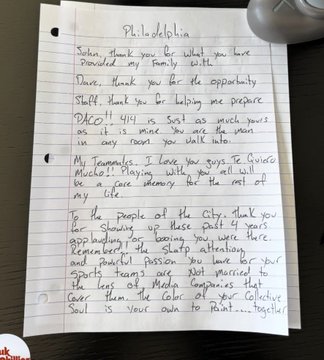 Philadelphia
John, thank you for what you have
provided my Family with
Dave, thank you for the opportunity
Staff, thank you for helping me prepare
PACO!! 414 is Just as much yours
as it is mine You are the man
in any room you walk into.
My Teammates. I love you guys Te Quiero
Mucho!! Playing with you all will
be a core memory for the rest of
my life.
To the people of the City. Thank you
for showing up these past 4 years
applauding or booing you were there.
Remember the sharp attention
and powerful passion you have for your
Sports teams are Not married to
the lens of Media Companies that
Cover them. The Color of your Collective
Soul is your own to Paint.....together
uk